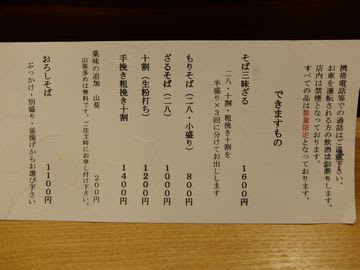 携帯電話等での通話はご遠慮下さい。
お車を運転される方の飲酒は御断りします。
店内は禁煙となっております。
すべての品は数量限定となっております。
できますもの
そば三昧ざる 1600円
二八・十割・粗挽き十割を
半盛り×3回に分けてお出しします
もりそば(二八・小盛り) 800円
ざるそば(二八) 1000円
十割(生粉打ち) 1200円
手挽き粗挽き十割 1400円
薬味の追加 山葵 200円
山葵多めは無料です。ご注文時にお申し付け下さい。
おろしそば 1100円
ぶっかけ・別盛り・釜揚げからお選び下さい